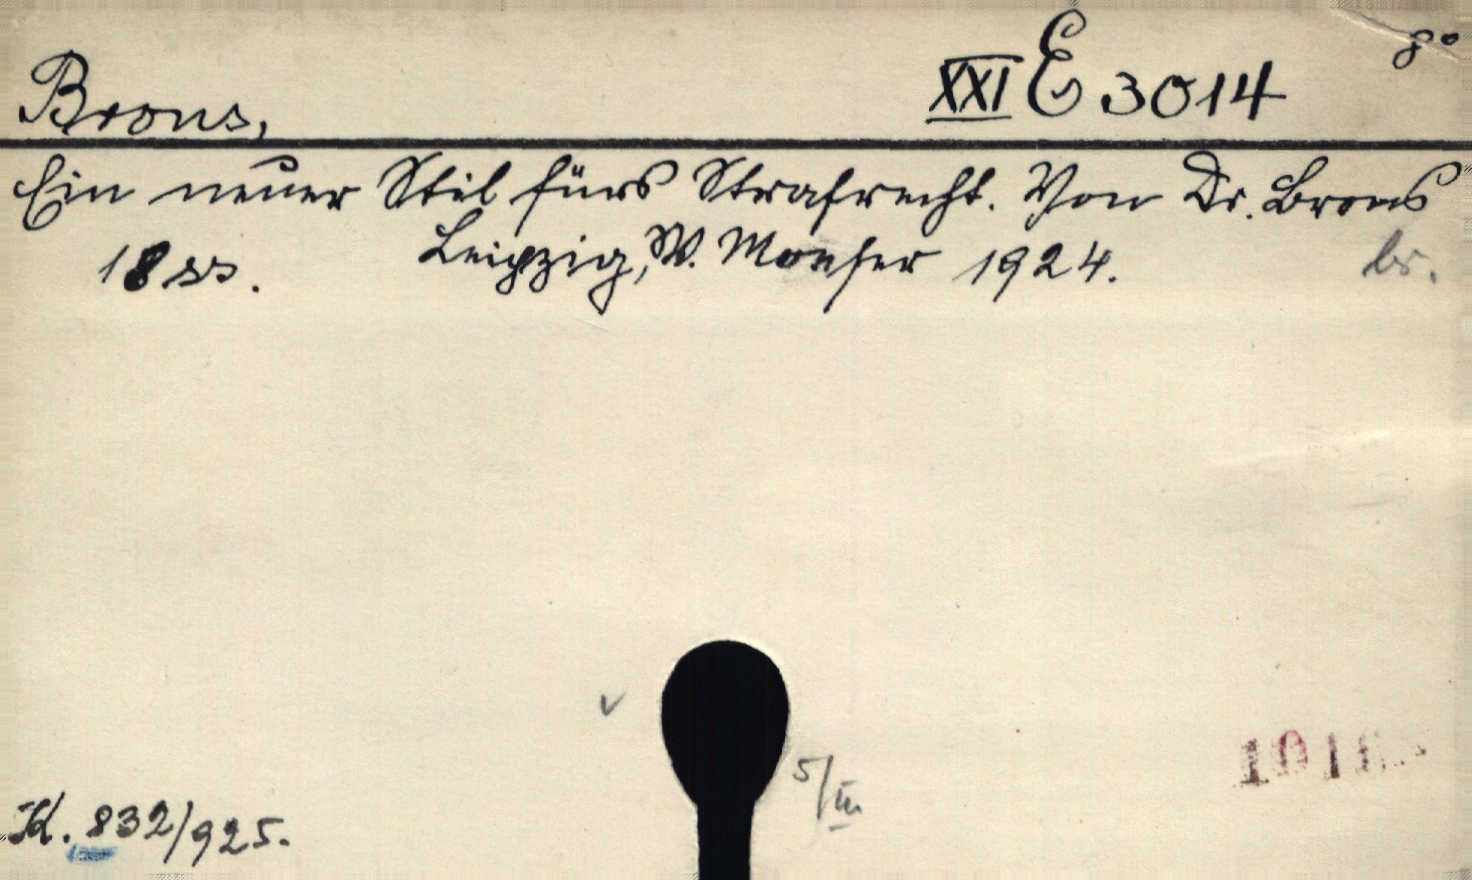 Brons, XXI E 3014 8°
Ein neuer Stil fürs Strafrecht. Von Dr. Brons
18 SS. Leipzig, W. Moeser 1924. br.
5/III
K. 832/925.